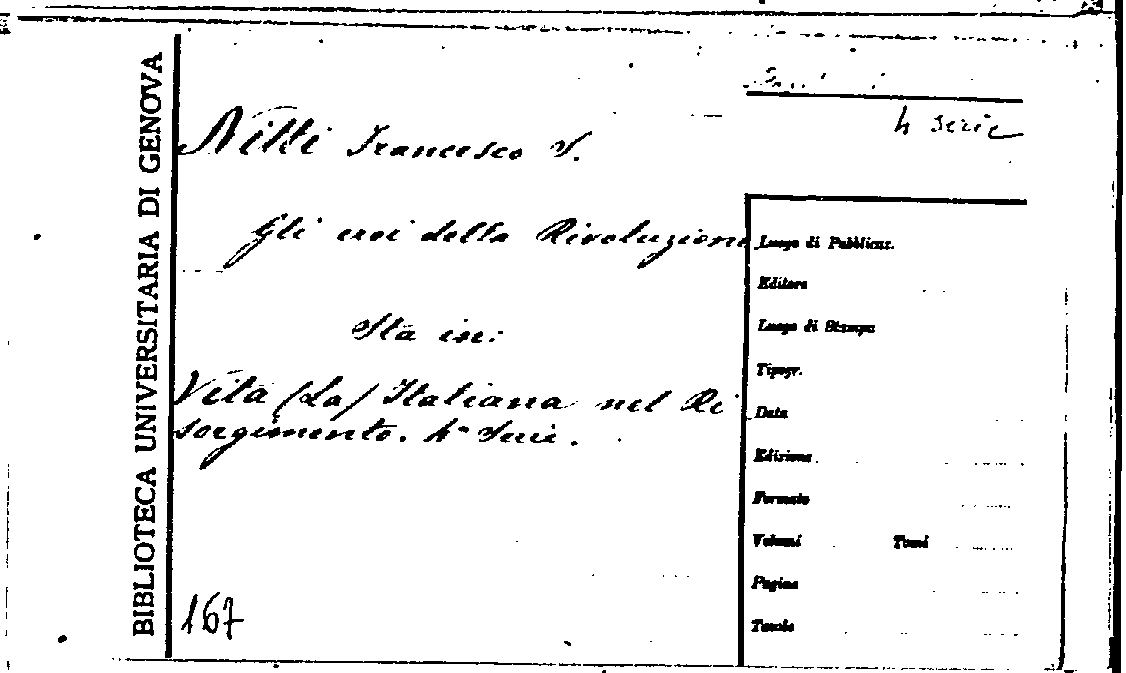 BIBLIOTECA UNIVERSITARIA DI GENOVA
4 serie
Nitti Francesco S.
Gli eroi della Rivoluzione
Sta in:
Vita (La) Italiana nel Ri
sorgimento. 4ª Serie.
167
Luogo di Pubblicaz.
Editore
Luogo di Stampa
Tipogr.
Data
Edizione
Formato
Volumi Tomi
Pagine
Tavole